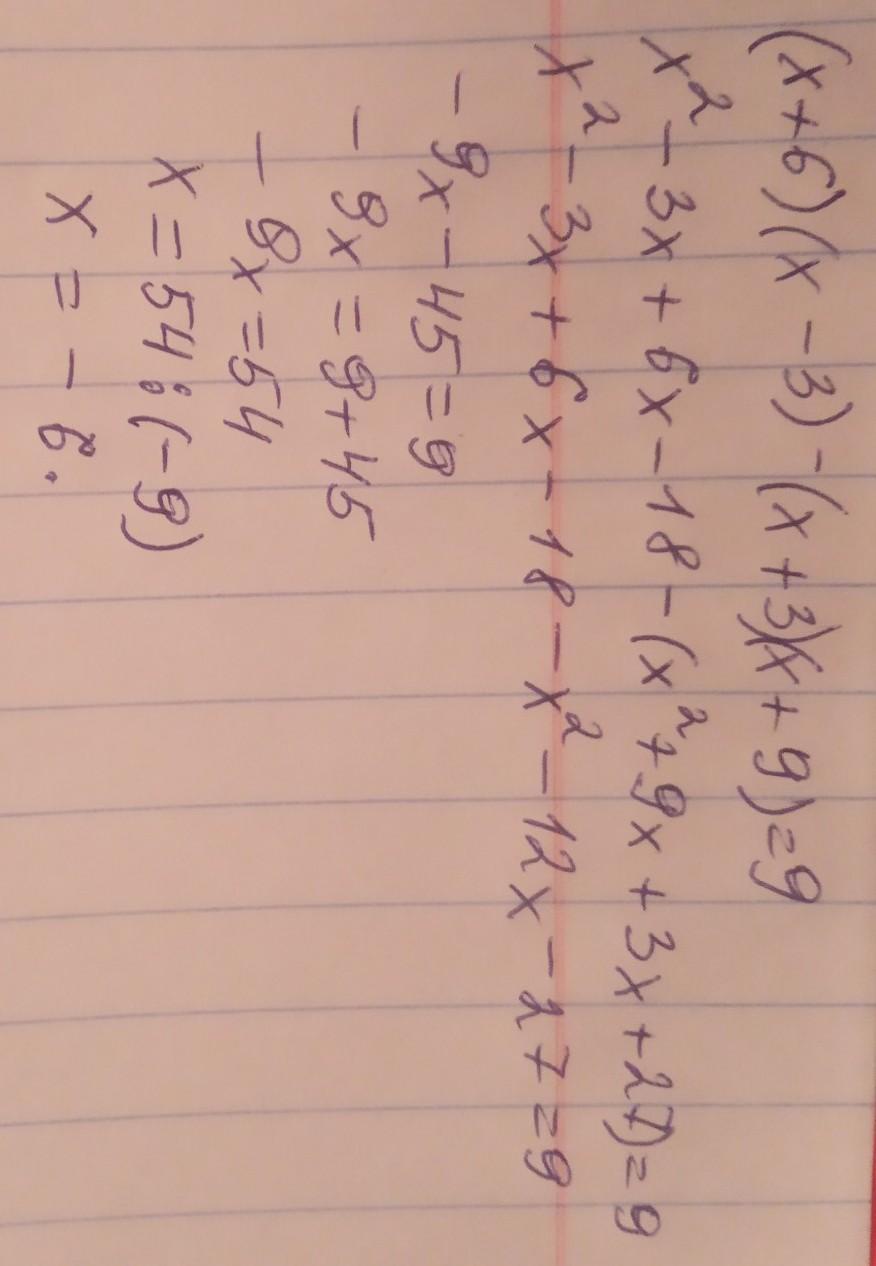 (x+6)(x-3)-(x+3)(x+9)=9
x²-3x+6x-18-(x²+9x+3x+27)=9
x²-3x+6x-18-x²-12x-27=9
-9x-45=9
-9x=9+45
-9x=54
x=54:(-9)
x=-6.